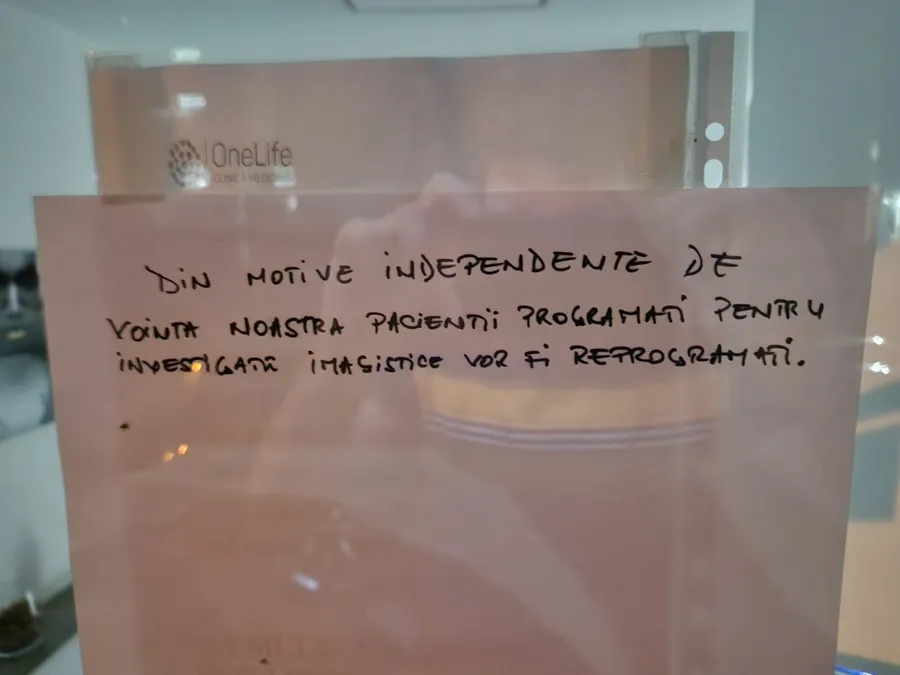 OneLife
CLINICA MEDICALA
DIN MOTIVE INDEPENDENTE DE
VOINTA NOASTRA PACIENTII PROGRAMATI PENTRU
INVESTIGATII IMAGISTICE VOR FI REPROGRAMATI.